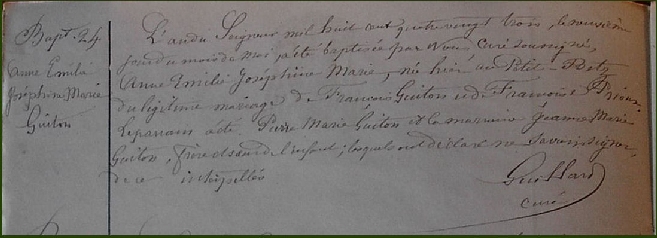 Bapt. 24
Anne Emilie
Joséphine Marie
Guiton
L'an du Seigneur mil huit cent quatre vingt trois, le neuvième
jour du mois de Mai, a été baptisée par Nous, Curé soussigné,
Anne Emilie Joséphine Marie, née hier au Petit-Betz
du légitime mariage de François Guiton et de Françoise
Le parrain a été Pierre Marie Guiton et la marraine Jeanne Marie
Guiton, frère et sœur de l'enfant; lesquels ont déclaré ne savoir signer,
de ce interpellés
Guillard
curé